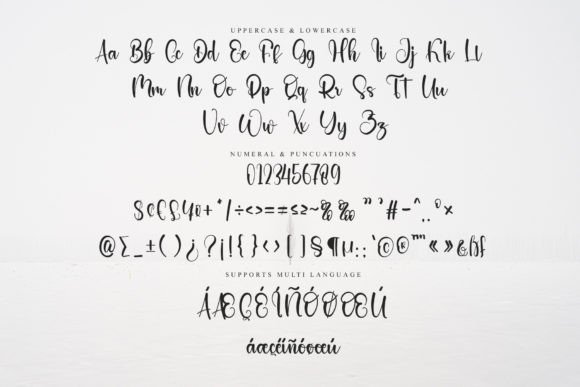 UPPERCASE & LOWERCASE
Aa Bb Cc Dd Ee Ff Gg Hh Ii Jj Kk Ll
Mm Nn Oo Pp Qq Rr Ss Tt Uu
Vv Ww Xx Yy Zz
NUMERAL & PUNCUATIONS
0123456789
$¢€£¥0+*/÷<>=±≤≥~%‰ ” ’#-^¸¸°×
@Σ_±()¿?¡!{}<>[]§¶µ:;`©®™«»
SUPPORTS MULTI LANGUAGE
ÁÆÇÉÍÑÓØŒÚ
áæçéíñóøœú